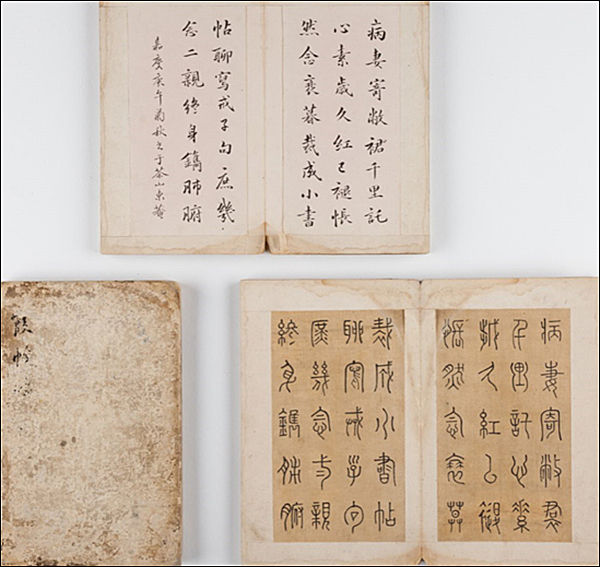 病妻寄敝裙千里託
心素歲久紅已褪悵
然念衰暮裁成小書
帖聊寫戒子句庶幾
念二親終身鐫肺腑
嘉慶庚午菊秋書于茶山東菴
霞帔帖
病妻寄敝裙
千里託心素
歲久紅已褪
悵然念衰暮
裁成小書帖
聊寫戒子句
庶幾念二親
終身鐫肺腑